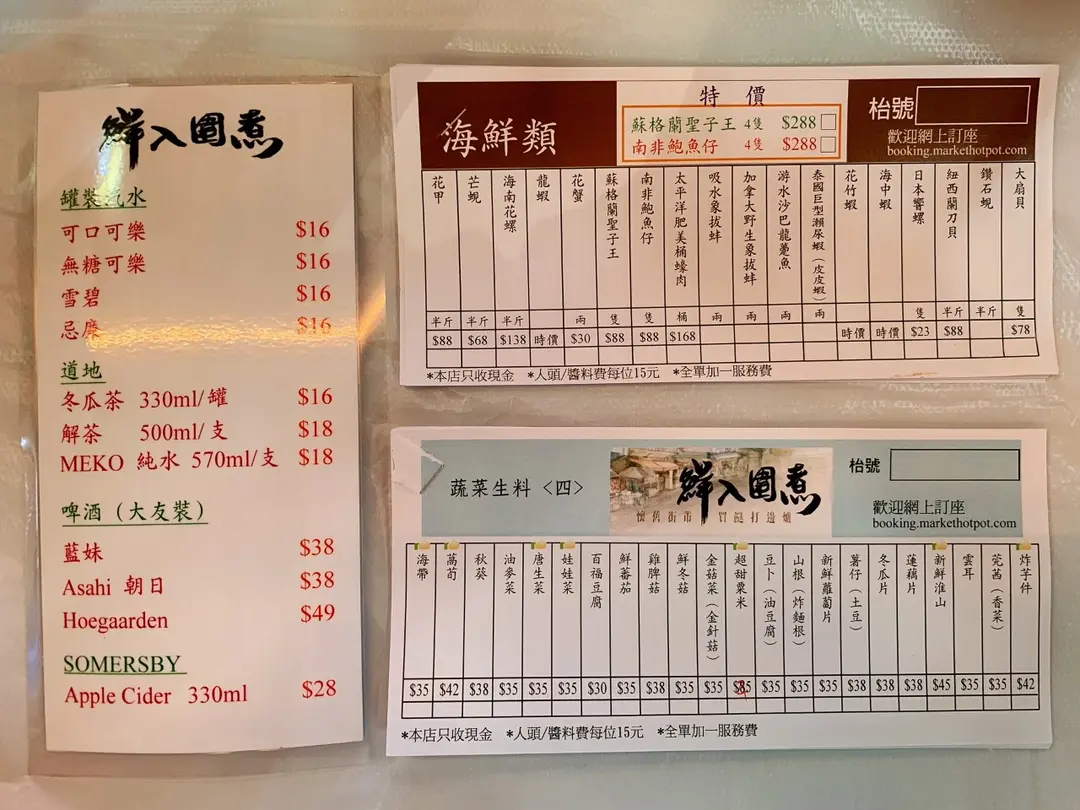 鮮入圍煮
罐裝汽水
可口可樂 $16
無糖可樂 $16
雪碧 $16
忌廉 $16
道地
冬瓜茶 330ml/罐 $16
解茶 500ml/支 $18
MEKO 純水 570ml/支 $18
啤酒（大友裝）
藍妹 $38
Asahi 朝日 $38
Hoegaarden $49
SOMERSBY
Apple Cider 330ml $28
海鮮類
特價
蘇格蘭聖子王 4隻 $288
南非鮑魚仔 4隻 $288
枱號
歡迎網上訂座
booking.markethotpot.com
花甲 半斤 $88
芒蜆 半斤 $68
海南花螺 半斤 $138
龍蝦 時價
花蟹 兩 $30
蘇格蘭聖子王 隻 $88
南非鮑魚仔 隻 $88
太平洋肥美桶蠔肉 桶 $168
吸水象拔蚌 兩
加拿大野生象拔蚌 兩
游水沙巴龍躉魚 兩
泰國巨型瀨尿蝦（皮皮蝦） 兩
花竹蝦 時價
海中蝦 時價
日本響螺 隻 $23
紐西蘭刀貝 半斤 $88
鑽石蜆 半斤
大扇貝 隻 $78
*本店只收現金 *人頭/醬料費每位15元 *全單加一服務費
蔬菜生料 <四>
鮮入圍煮
懷舊街市 買餸打邊爐
枱號
歡迎網上訂座
booking.markethotpot.com
海帶 $35
萵荀 $42
秋葵 $38
油麥菜 $35
唐生菜 $35
娃娃菜 $35
百福豆腐 $30
鮮蕃茄 $35
雞脾菇 $38
鮮冬菇 $35
金菇菜（金針菇） $35
超甜粟米
豆卜（油豆腐） $35
山根（炸麵根） $35
新鮮蘿蔔片 $35
薯仔（土豆） $38
冬瓜片 $38
蓮藕片 $38
新鮮淮山 $45
雲耳 $35
芫茜（香菜） $35
炸芋件 $42
*本店只收現金 *人頭/醬料費每位15元 *全單加一服務費